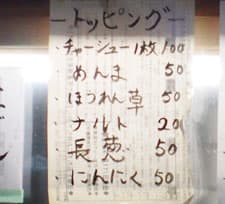 ートッピングー
・チャーシュー1枚 100
・めんま 50
・ほうれん草 50
・ナルト 20
・長葱 50
・にんにく 50